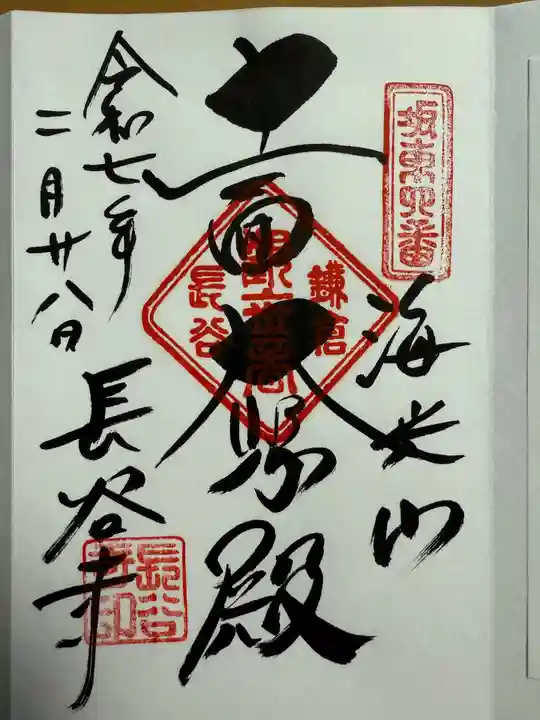 坂東四番
海光山
十一面大悲殿
鎌倉
観世音
長谷
令和七年
二月廿八日
長谷寺
長谷
寺印